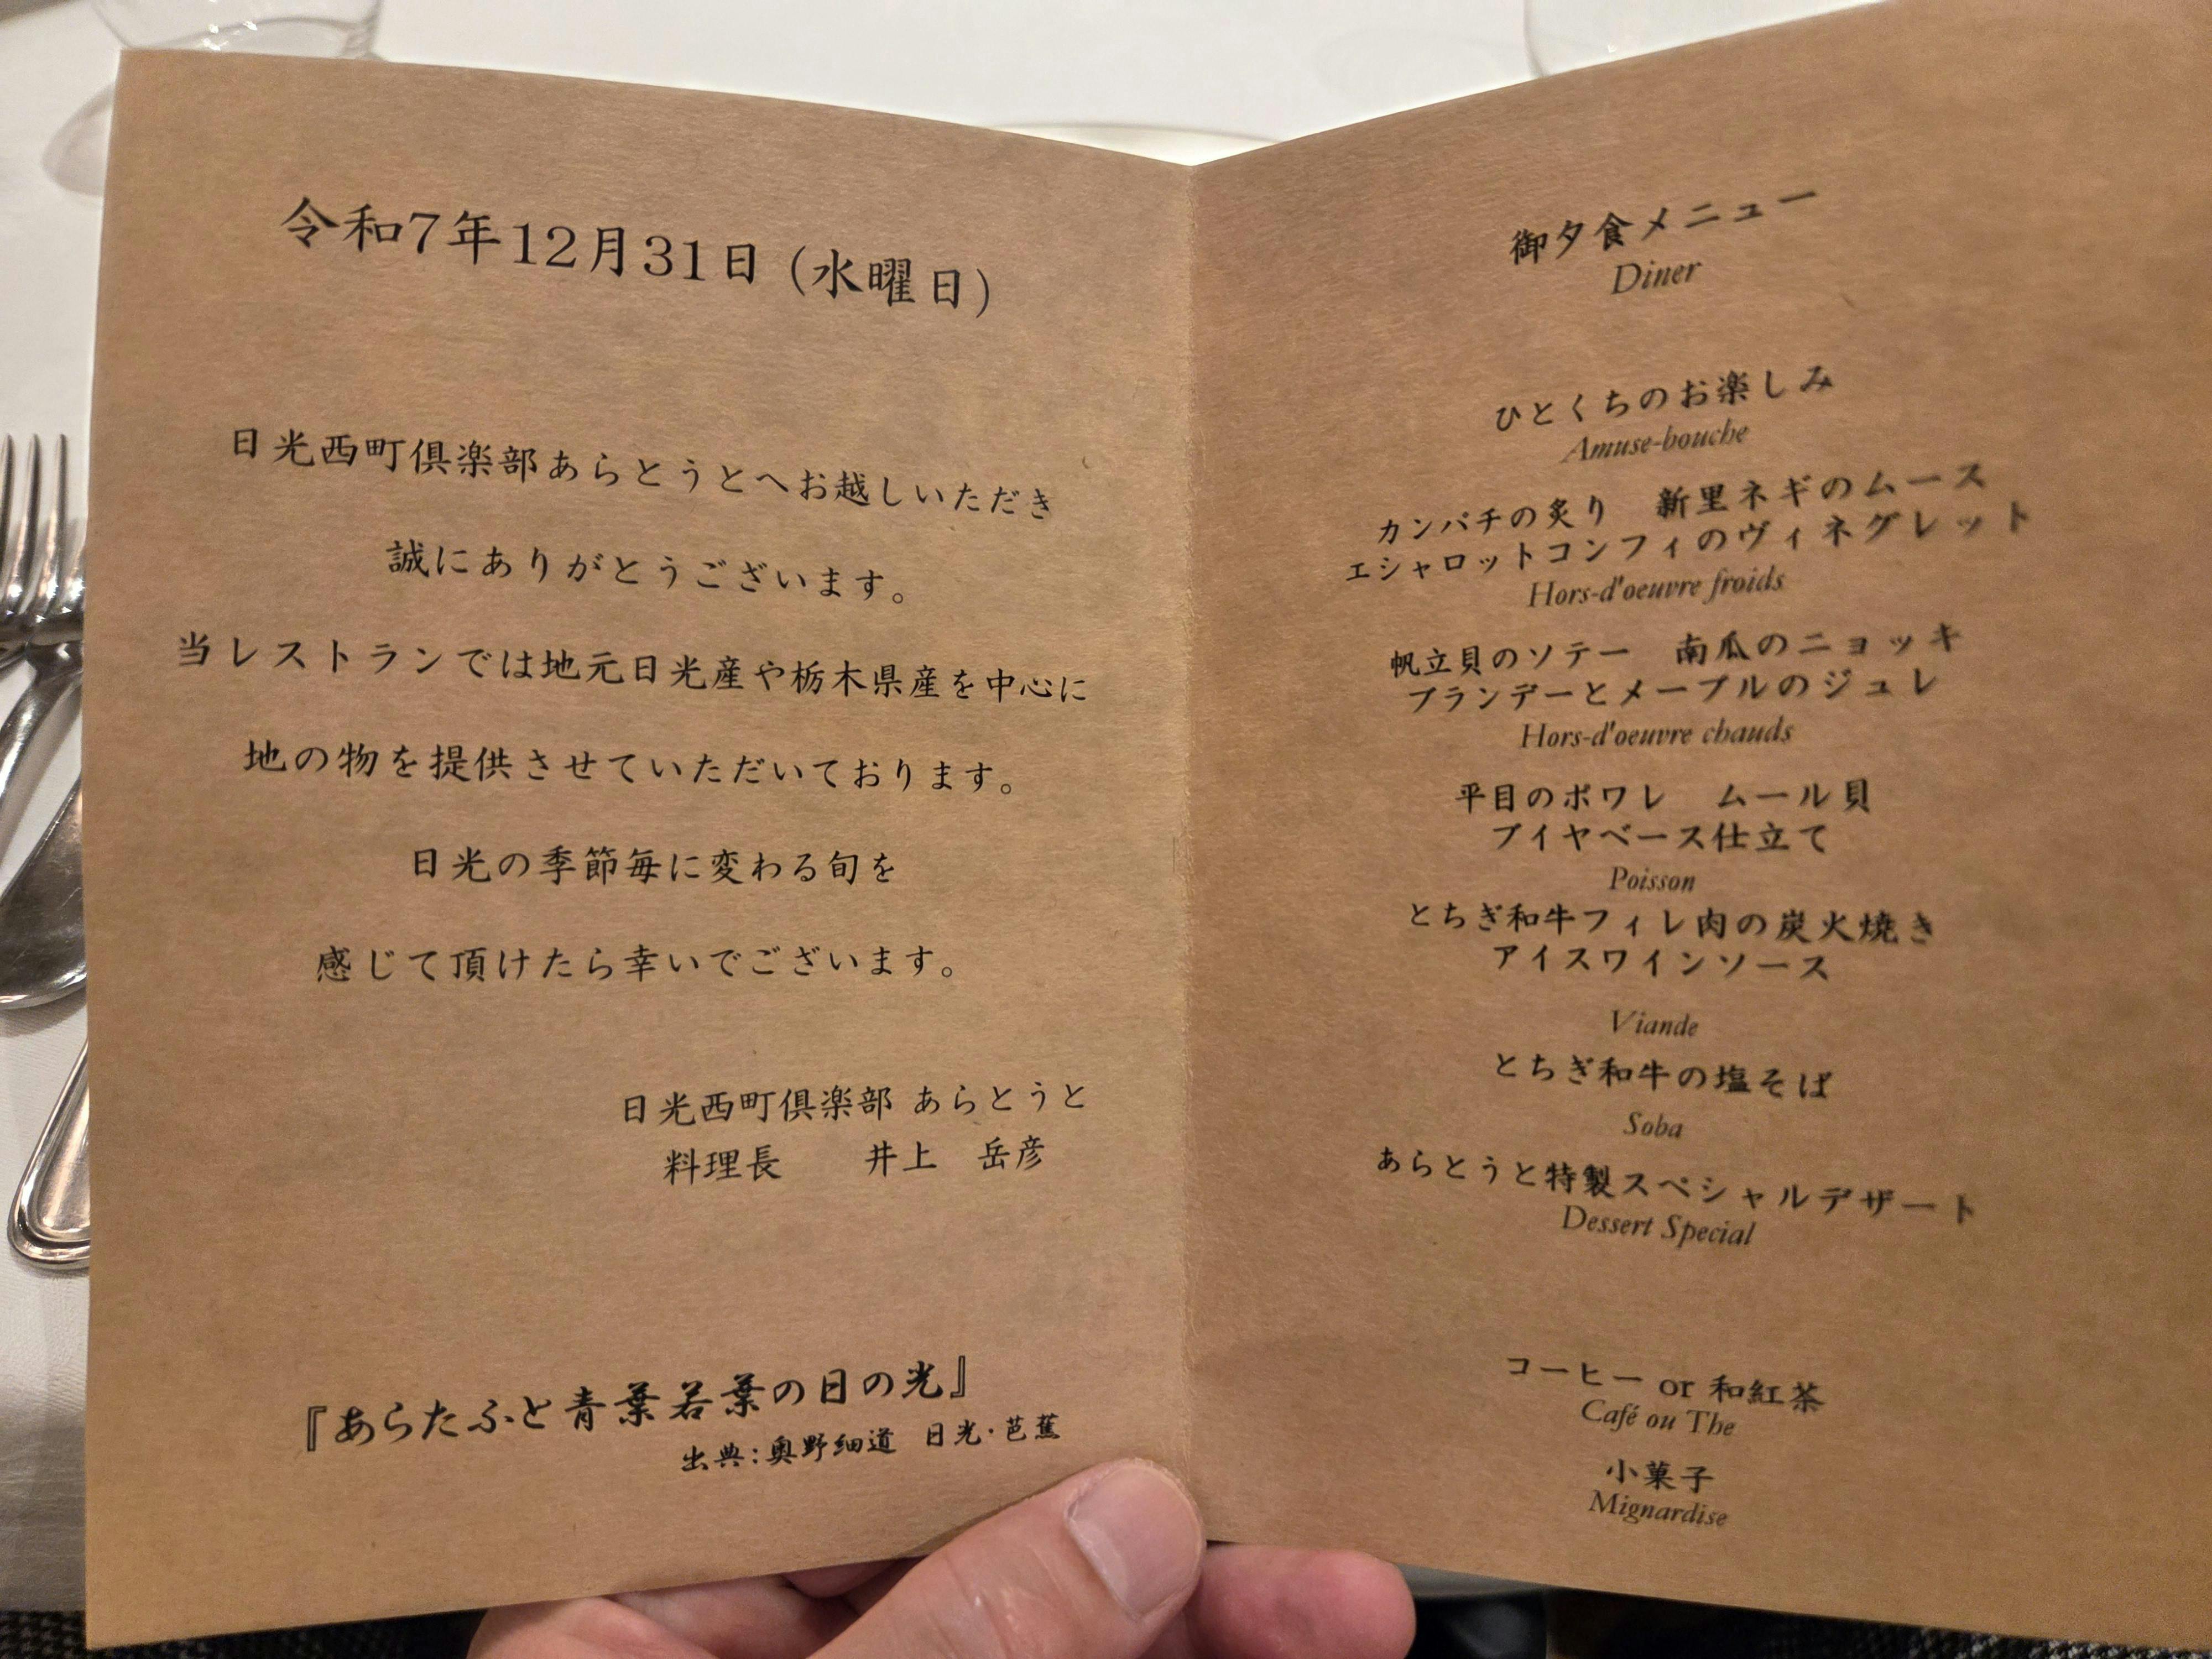 令和7年12月31日（水曜日）
日光西町倶楽部あらとうとへお越しいただき
誠にありがとうございます。
当レストランでは地元日光産や栃木県産を中心に
地の物を提供させていただいております。
日光の季節毎に変わる旬を
感じて頂けたら幸いでございます。
日光西町倶楽部 あらとうと
料理長　　井上　岳彦
『あらたふと青葉若葉の日の光』
出典：奥野細道　日光・芭蕉
御夕食メニュー
Diner
ひとくちのお楽しみ
Amuse-bouche
カンパチの炙り　新里ネギのムース
エシャロットコンフィのヴィネグレット
Hors-d'oeuvre froids
帆立貝のソテー　南瓜のニョッキ
ブランデーとメープルのジュレ
Hors-d'oeuvre chauds
平目のポワレ　ムール貝
ブイヤベース仕立て
Poisson
とちぎ和牛フィレ肉の炭火焼き
アイスワインソース
Viande
とちぎ和牛の塩そば
Soba
あらとうと特製スペシャルデザート
Dessert Special
コーヒー or 和紅茶
Café ou The
小菓子
Mignardise